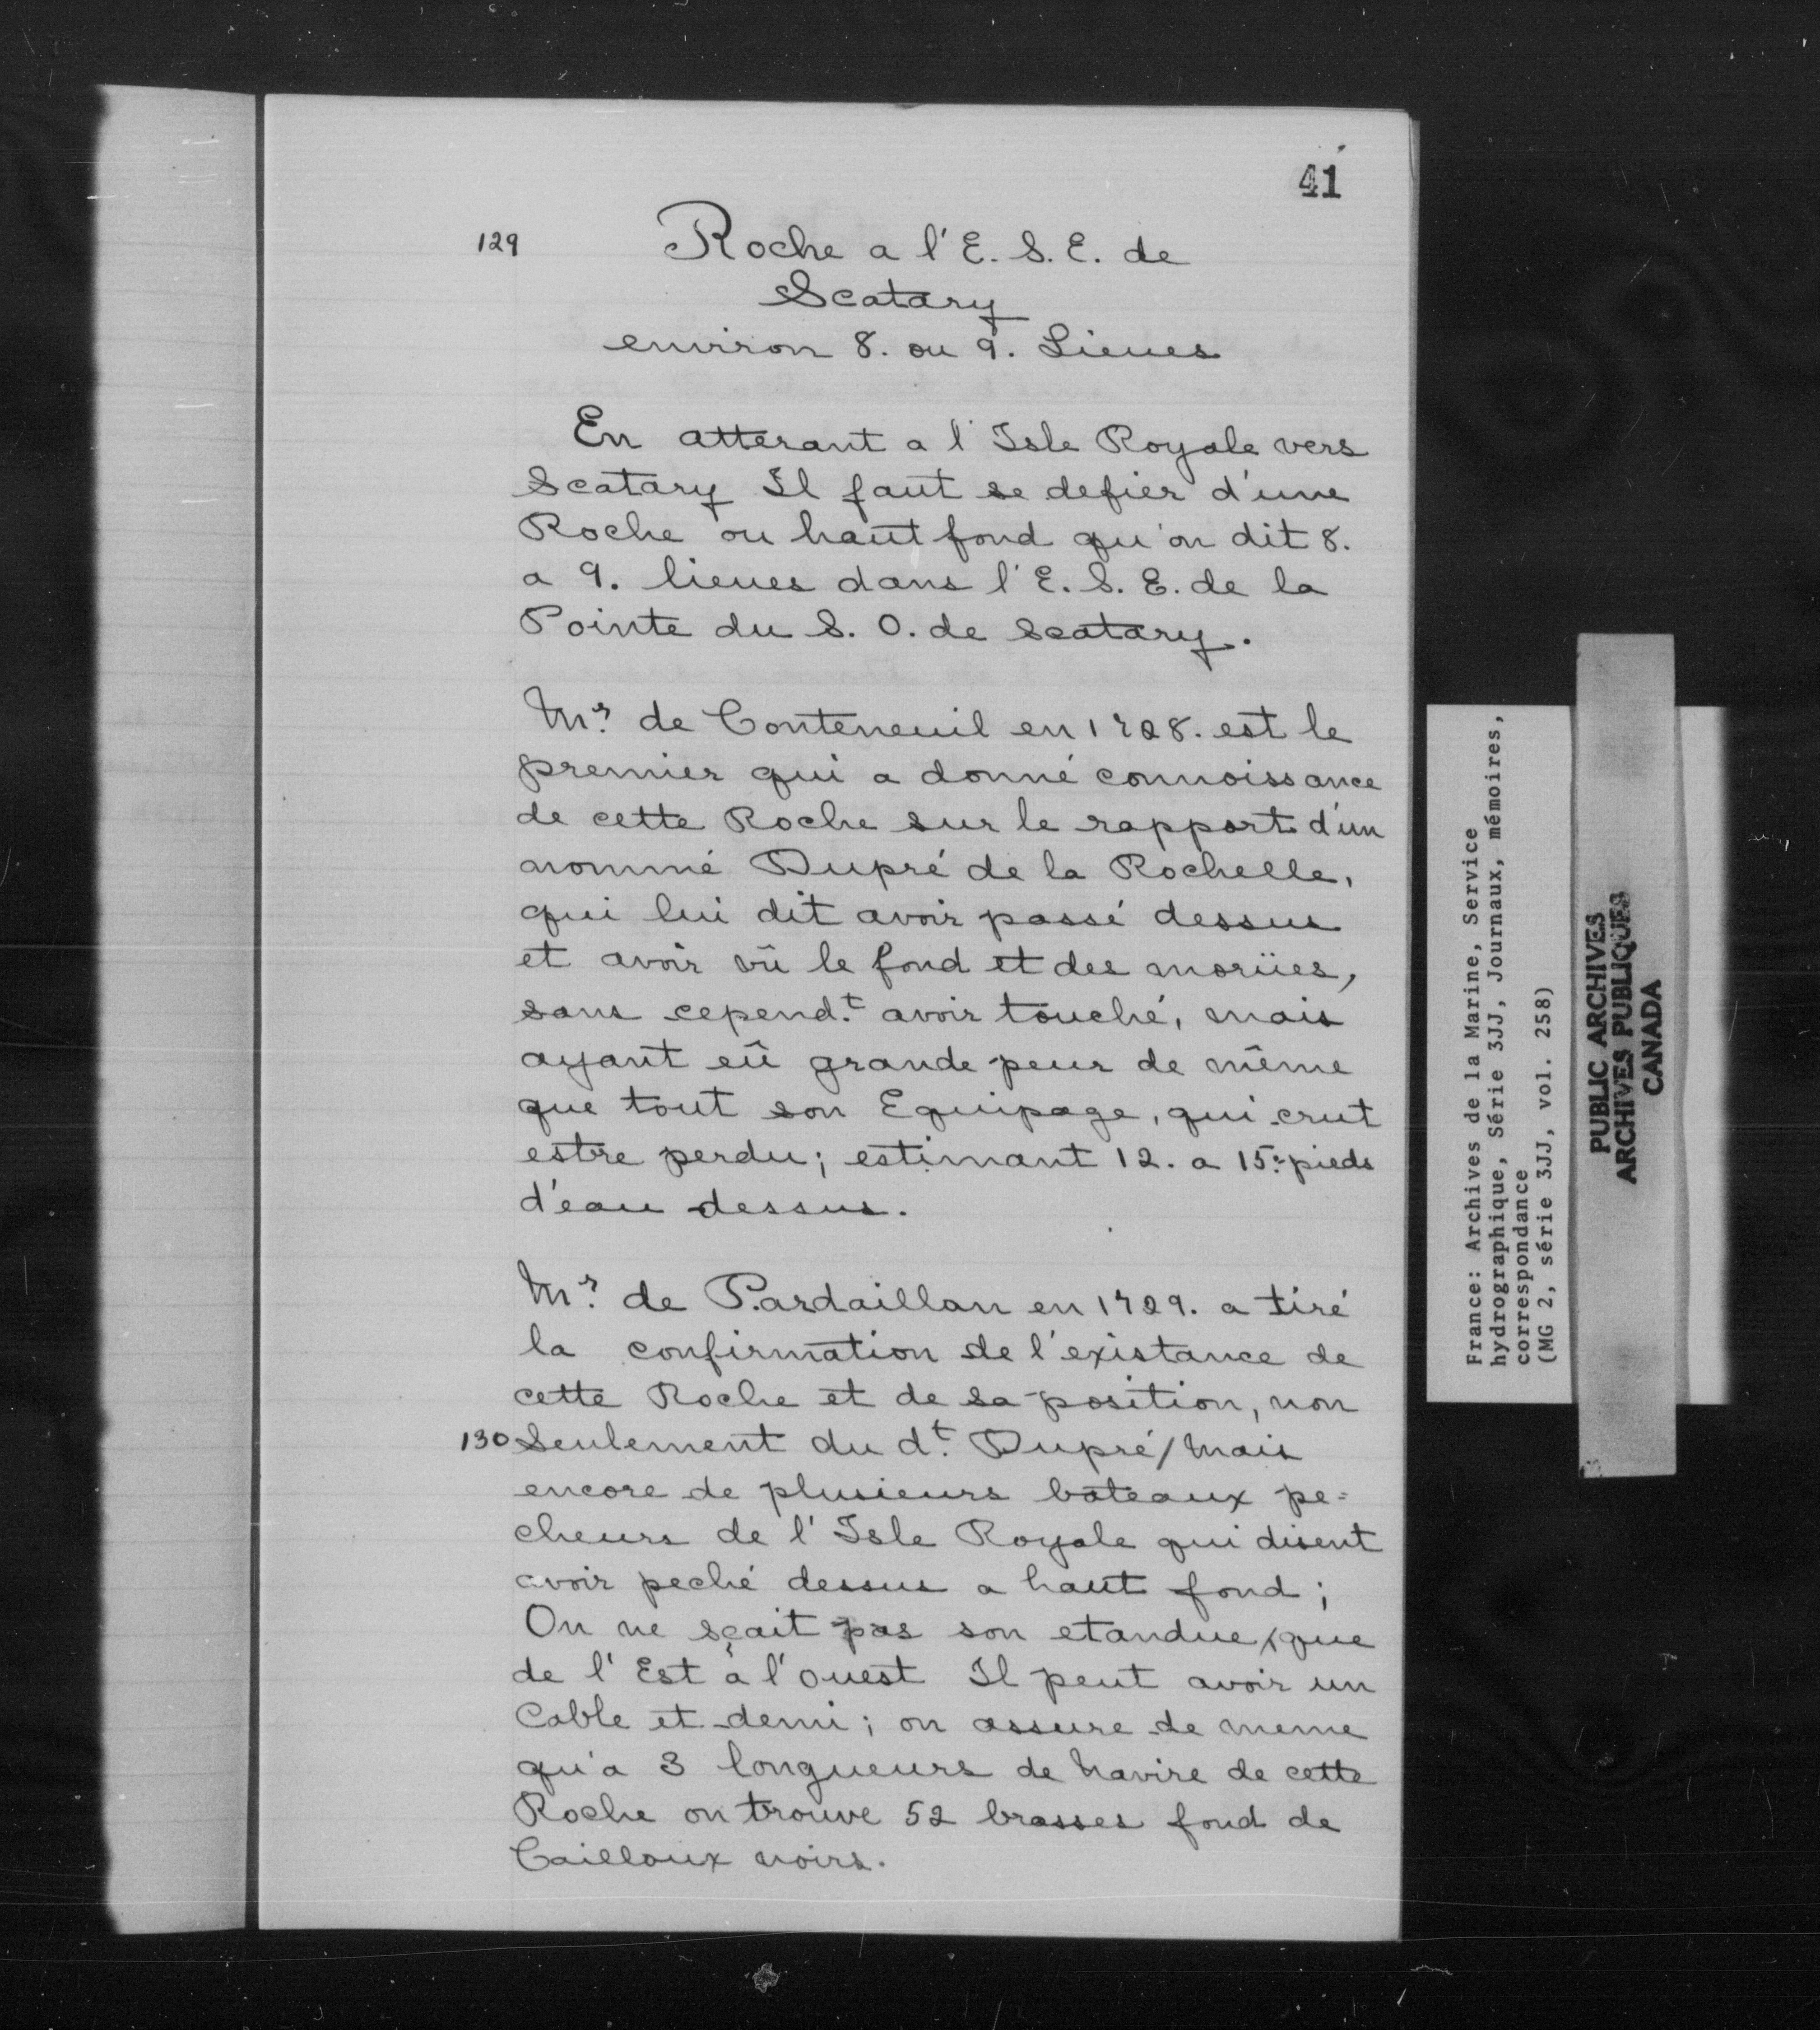 41
129
Roche a l'E. S. E. de
Scatary
environ 8. ou 9. Lieues
En atterant a l'Isle Royale vers
Scatary Il faut se defier d'une
Roche ou haut fond qu'on dit 8.
a 9. lieues dans l'E. S. E. de la
Pointe du S. O. de Scatary.
Mr. de Conteneuil en 1728. est le
premier qui a donné connoissance
de cette Roche sur le rapport d'un
nommé Dupré de la Rochelle,
qui lui dit avoir passé dessus
et avoir vû le fond et des moriies,
sans cepend.t avoir touché, mais
ayant eû grande peur de même
que tout son Equipage, qui crut
estre perdu; estimant 12. a 15. pieds
d'eau dessus.
Mr. de Pardaillan en 1729. a tiré
la confirmation de l'existance de
cette Roche et de sa position, non
130 Seulement du d.t Dupré/Mais
encore de plusieurs bateaux pe=
cheurs de l'Isle Royale qui disent
avoir peché dessus a haut fond;
On ne sçait pas son etandue, que
de l'Est à l'ouest Il peut avoir un
Cable et demi; on assure de meme
qu'a 3 longueurs de Navire de cette
Roche on trouve 52 brasses fond de
Cailloux noirs.
France: Archives de la Marine, Service
hydrographique, Série 3JJ, Journaux, mémoires,
correspondance
(MG 2, série 3JJ, vol. 258)
PUBLIC ARCHIVES
ARCHIVES PUBLIQUES
CANADA